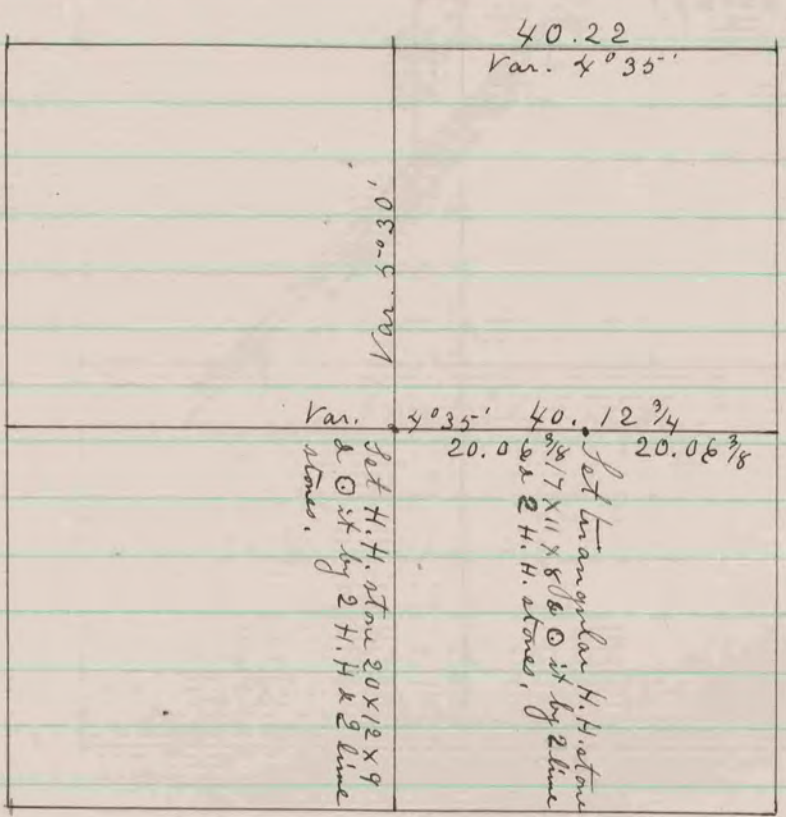 40.22
Var. 4° 35'
Var. 5-30'
Var. 4° 35' 40. 12 3/4
20.06 3/8 20.06 3/8
Set H. H. stone 20 x 12 x 9
& ⊙ it by 2 H. H & 2 lime
stones.
Set triangular H. H. stone
17 x 11 x 8 & ⊙ it by 2 lime
& 2 H. H. stones.